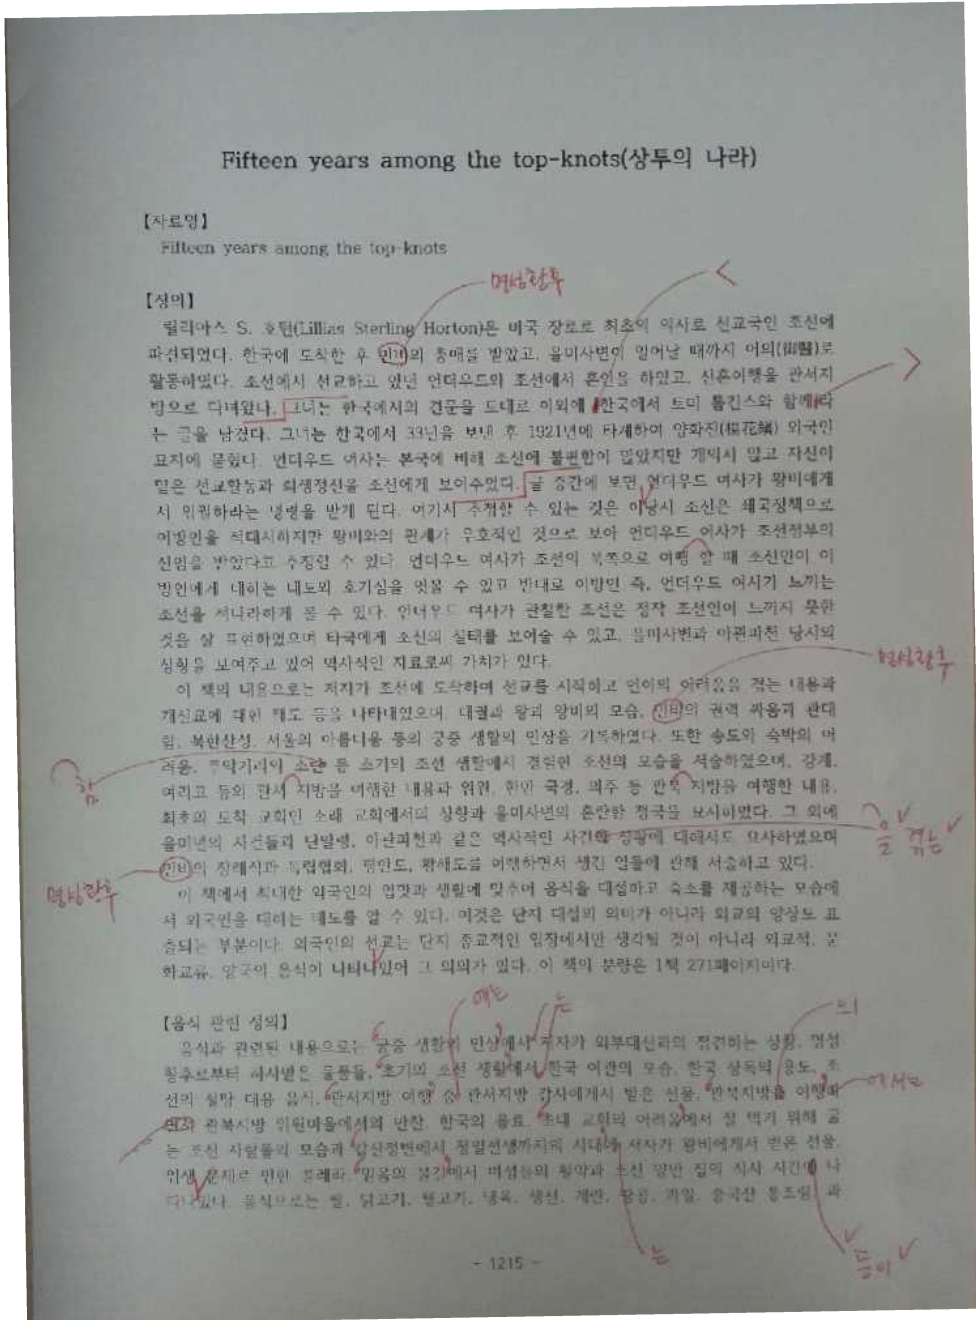 Fifteen years among the top-knots(상투의 나라)
【자료명】
Fifteen years among the top-knots
명성황후
【정의】
릴리아스 S. 호턴(Lillias Sterling Horton)은 미국 장로로 최초의 의사로 선교국인 조선에
파견되었다. 한국에 도착한 후 민비의 총애를 받았고, 을미사변이 일어날 때까지 어의(御醫)로
활동하였다. 조선에서 선교하고 있던 언더우드와 조선에서 혼인을 하였고, 신혼여행을 관서지
방으로 다녀왔다. 그녀는 한국에서의 견문을 토대로 이외에 한국에서 토미 톰킨스와 함께라
는 글을 남겼다. 그녀는 한국에서 33년을 보낸 후 1921년에 타계하여 양화진(楊花鎭) 외국인
묘지에 묻혔다. 언더우드 여사는 본국에 비해 조선에 불편함이 많았지만 개의치 않고 자신이
믿은 선교활동과 희생정신을 조선에게 보여주었다. 글 중간에 보면 언더우드 여사가 왕비에게
서 위험하라는 명령을 받게 된다. 여기서 추정할 수 있는 것은 이당시 조선은 쇄국정책으로
이방인을 적대시하지만 왕비와의 관계가 우호적인 것으로 보아 언더우드 여사가 조선정부의
신임을 받았다고 추정할 수 있다. 언더우드 여사가 조선의 북쪽으로 여행 할 때 조선인이 이
방인에게 대하는 태도와 호기심을 엿볼 수 있고 반대로 이방인 즉, 언더우드 여사가 느끼는
조선을 적나라하게 볼 수 있다. 언더우드 여사가 관찰한 조선은 정작 조선인이 느끼지 못한
것을 잘 표현하였으며 타국에게 조선의 실태를 보여줄 수 있고, 을미사변과 아관파천 당시의
상황을 보여주고 있어 역사적인 자료로써 가치가 있다.
명성황후
이 책의 내용으로는 저자가 조선에 도착하며 선교를 시작하고 언어의 어려움을 겪는 내용과
개신교에 대한 태도 등을 나타내었으며, 대궐과 왕과 왕비의 모습, 민비의 권력 싸움과 관대
함, 북한산성, 서울의 아름다움 등의 궁중 생활의 인상을 기록하였다. 또한 송도와 숙박의 어
려움, 구약기리의 소란 등 초기의 조선 생활에서 경험한 조선의 모습을 서술하였으며, 강계,
함
여리고 등의 관서 지방을 여행한 내용과 위원, 한만 국경, 의주 등 관북 지방을 여행한 내용,
최초의 토착 교회인 소래 교회에서의 상황과 을미사변의 혼란한 정국을 묘사하였다. 그 외에
을미년의 사건들과 단발령, 아관파천과 같은 역사적인 사건한 상황에 대해서도 묘사하였으며
을 겪는
민비의 장례식과 독립협회, 평안도, 황해도를 여행하면서 생긴 일들에 관해 서술하고 있다.
명성황후
이 책에서 최대한 외국인의 입맛과 생활에 맞추어 음식을 대접하고 숙소를 제공하는 모습에
서 외국인을 대하는 태도를 알 수 있다. 이것은 단지 대접의 의미가 아니라 외교의 양상도 표
출되는 부분이다. 외국인의 선교는 단지 종교적인 입장에서만 생각될 것이 아니라 외교적, 문
화교류, 양국의 음식이 나타나있어 그 의의가 있다. 이 책의 분량은 1책 271페이지이다.
에는 는 의
【음식 관련 정의】
음식과 관련된 내용으로는 궁중 생활의 인상에서 저자가 외부대신과의 접견하는 상황, 명성
황후로부터 하사받은 물품들, 초기의 조선 생활에서 한국 여관의 모습, 한국 장독의 용도, 조
선의 설탕 대용 음식, 관서지방 여행 중 관서지방 감사에게서 받은 선물, 관북지방을 여행
에서도
관북지방 위원마을에서의 만찬, 한국의 음료, 초대 교회의 어려움에서 잘 먹기 위해 굶
는 조선 사람들의 모습과 갑신정변에서 청일전쟁까지의 시대에 저자가 왕비에게서 받은 선물,
위생 문제로 인한 콜레라, 믿음의 불길에서 여성들의 활약과 조선 양반 집의 식사 시간이 나
타나있다. 음식으로는 쌀, 닭고기, 꿩고기, 냉육, 생선, 계란, 땅콩, 과일, 중국산 통조림, 과
는
등이
- 1215 -